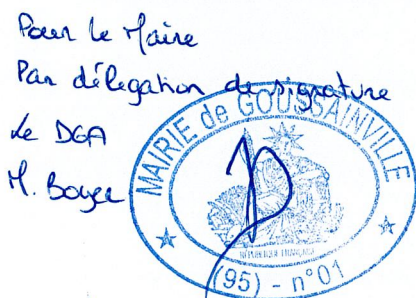 Pour Le Maire
Par délegation de signature
Le DGA
M. Boyer
MAIRIE de GOUSSAINVILLE
RÉPUBLIQUE FRANÇAISE
(95) - n°01